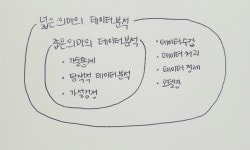 넓은 의미의 데이터 분석
좁은 의미의 데이터 분석
• 기술통계
• 탐색적 데이터 분석
• 가설검정
• 데이터 수집
• 데이터 처리
• 데이터 정제
• 모델링